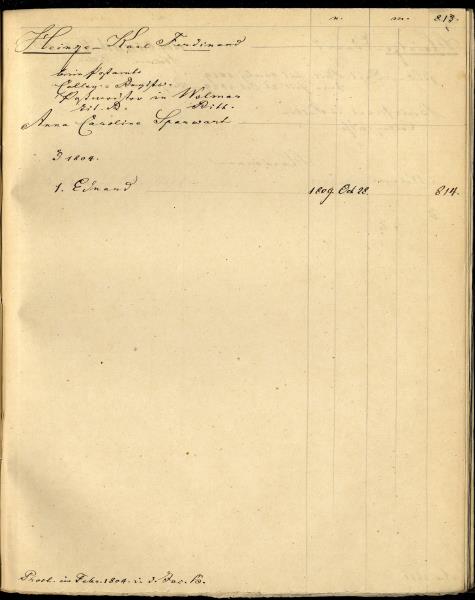 n. m. 813.
Heinze Karl Ferdinand
beim Postamte
Colleg. Registr.
Postmeister in Wolmar
tit. R. Ritt.
Anna Caroline Sparwart
1804.
1. Eduard 1809. Oct 28. 814.
Procl. im Febr. 1804. i. d. Jac. K.